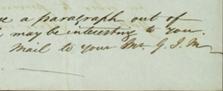 a paragraph out of
may be interesting to you.
Mail to your Mr G. J. M